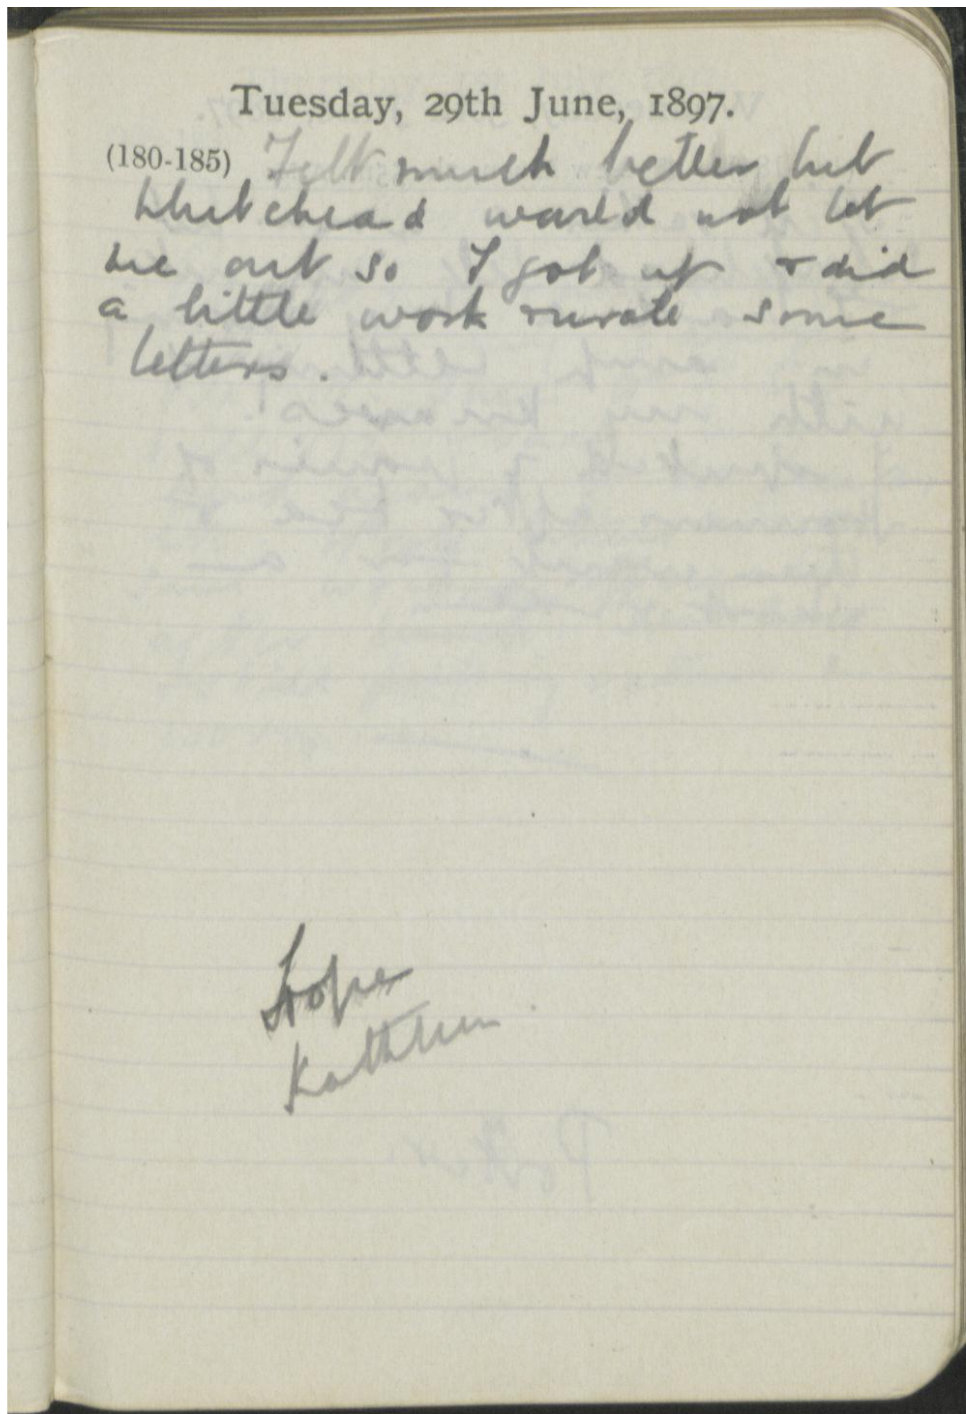 Tuesday, 29th June, 1897.
(180-185) Felt much better but
Whitehead would not let
me out so I got up & did
a little work & wrote some
letters.
Hope
Kathleen